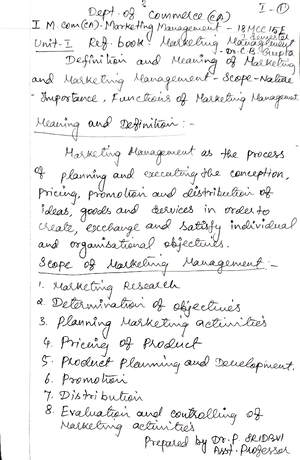 I - ①
Dept. of Commerce (CA)
I M.com(CA) - Marketing Management - 18MCC15E
I Semester
Unit - I Ref. book : Marketing Management
- Dr. C.B. Gupta
Definition and Meaning of Marketing
and Marketing Management - Scope - Nature
- Importance, Functions of Marketing Management
Meaning and Definition : -
Marketing Management as the process
of planning and executing the conception,
Pricing, promotion and distribution of
ideas, goods and services in order to
create, exchange and satisfy individual
and organisational objectives.
Scope of Marketing Management : -
1. Marketing Research
2. Determination of objectives
3. Planning Marketing activities
4. Pricing of Product
5. Product Planning and Development.
6. Promotion
7. Distribution
8. Evaluation and controlling of
Marketing activities
Prepared by Dr. P. SRIDEVI
Asst. Professor